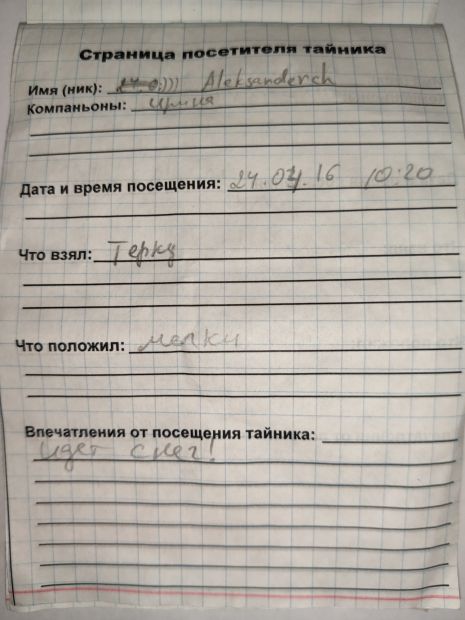 Страница посетителя тайника
Имя (ник): :))) Aleksanderch
Компаньоны: Ирина
Дата и время посещения: 24.04.16 10:20
Что взял: Терку
Что положил: мелки
Впечатления от посещения тайника:
идет снег!